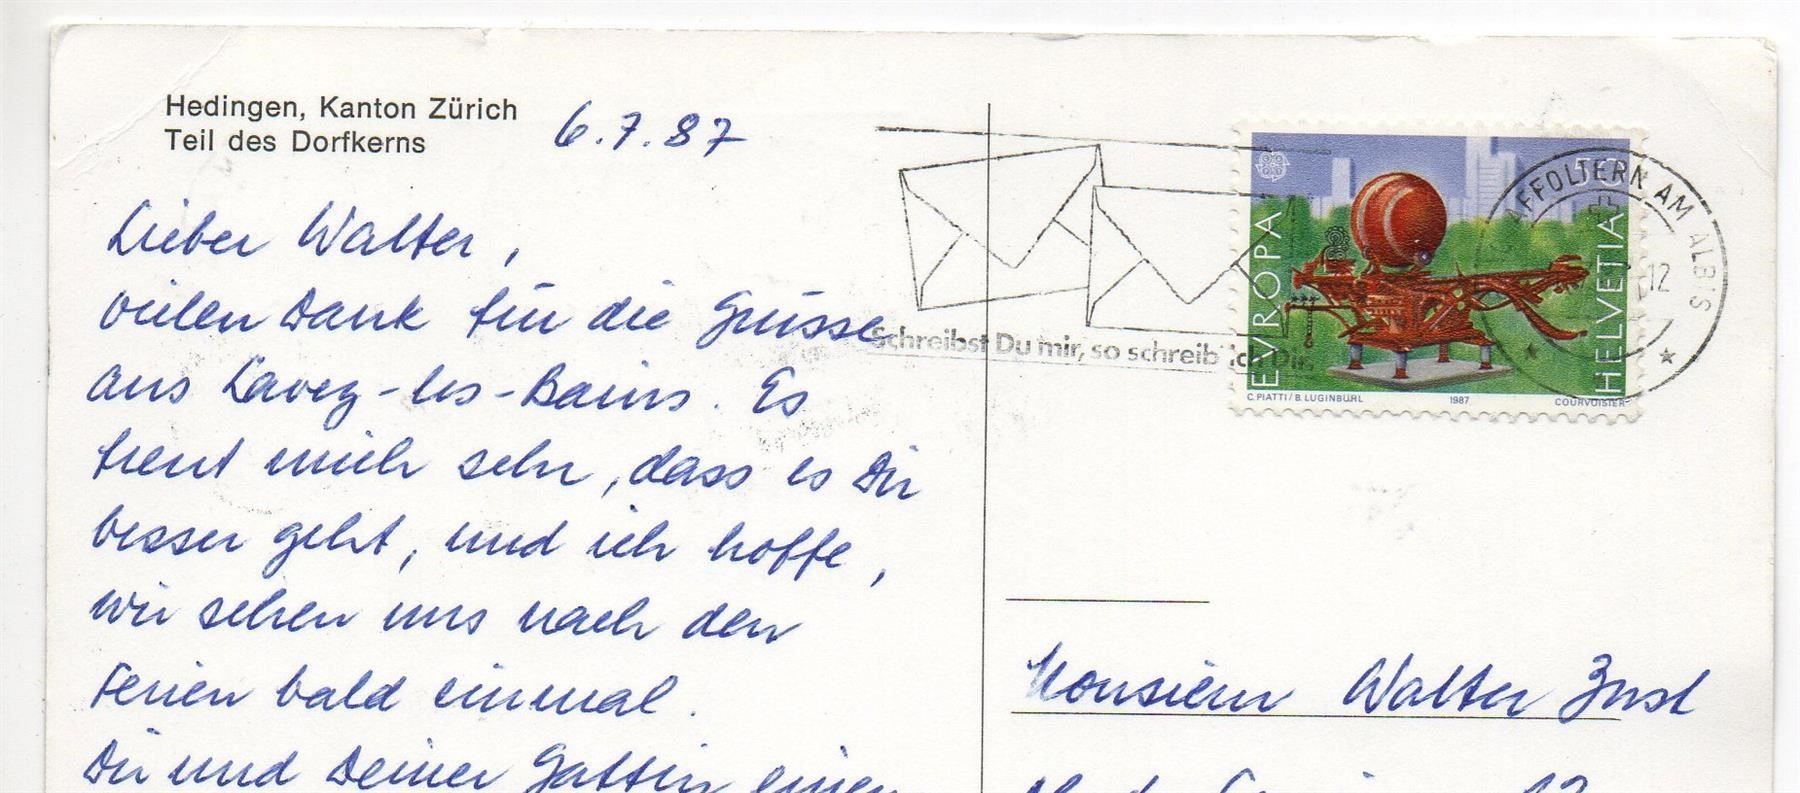 Hedingen, Kanton Zürich
Teil des Dorfkerns
6.7.87
Lieber Walter,
vielen Dank für die Grüsse
aus Lavey-les-Bains. Es
freut mich sehr, dass es Dir
besser geht, und ich hoffe,
wir sehen uns nach den
Ferien bald einmal.
Dir und Deiner Gattin einen
Schreibst Du mir, so schreib ich Dir.
EVROPA
HELVETIA
C. PIATTI / B. LUGINBÜHL 1987 COURVOISIER
AFFOLTERN AM ALBIS
12
Monsieur Walter Zust